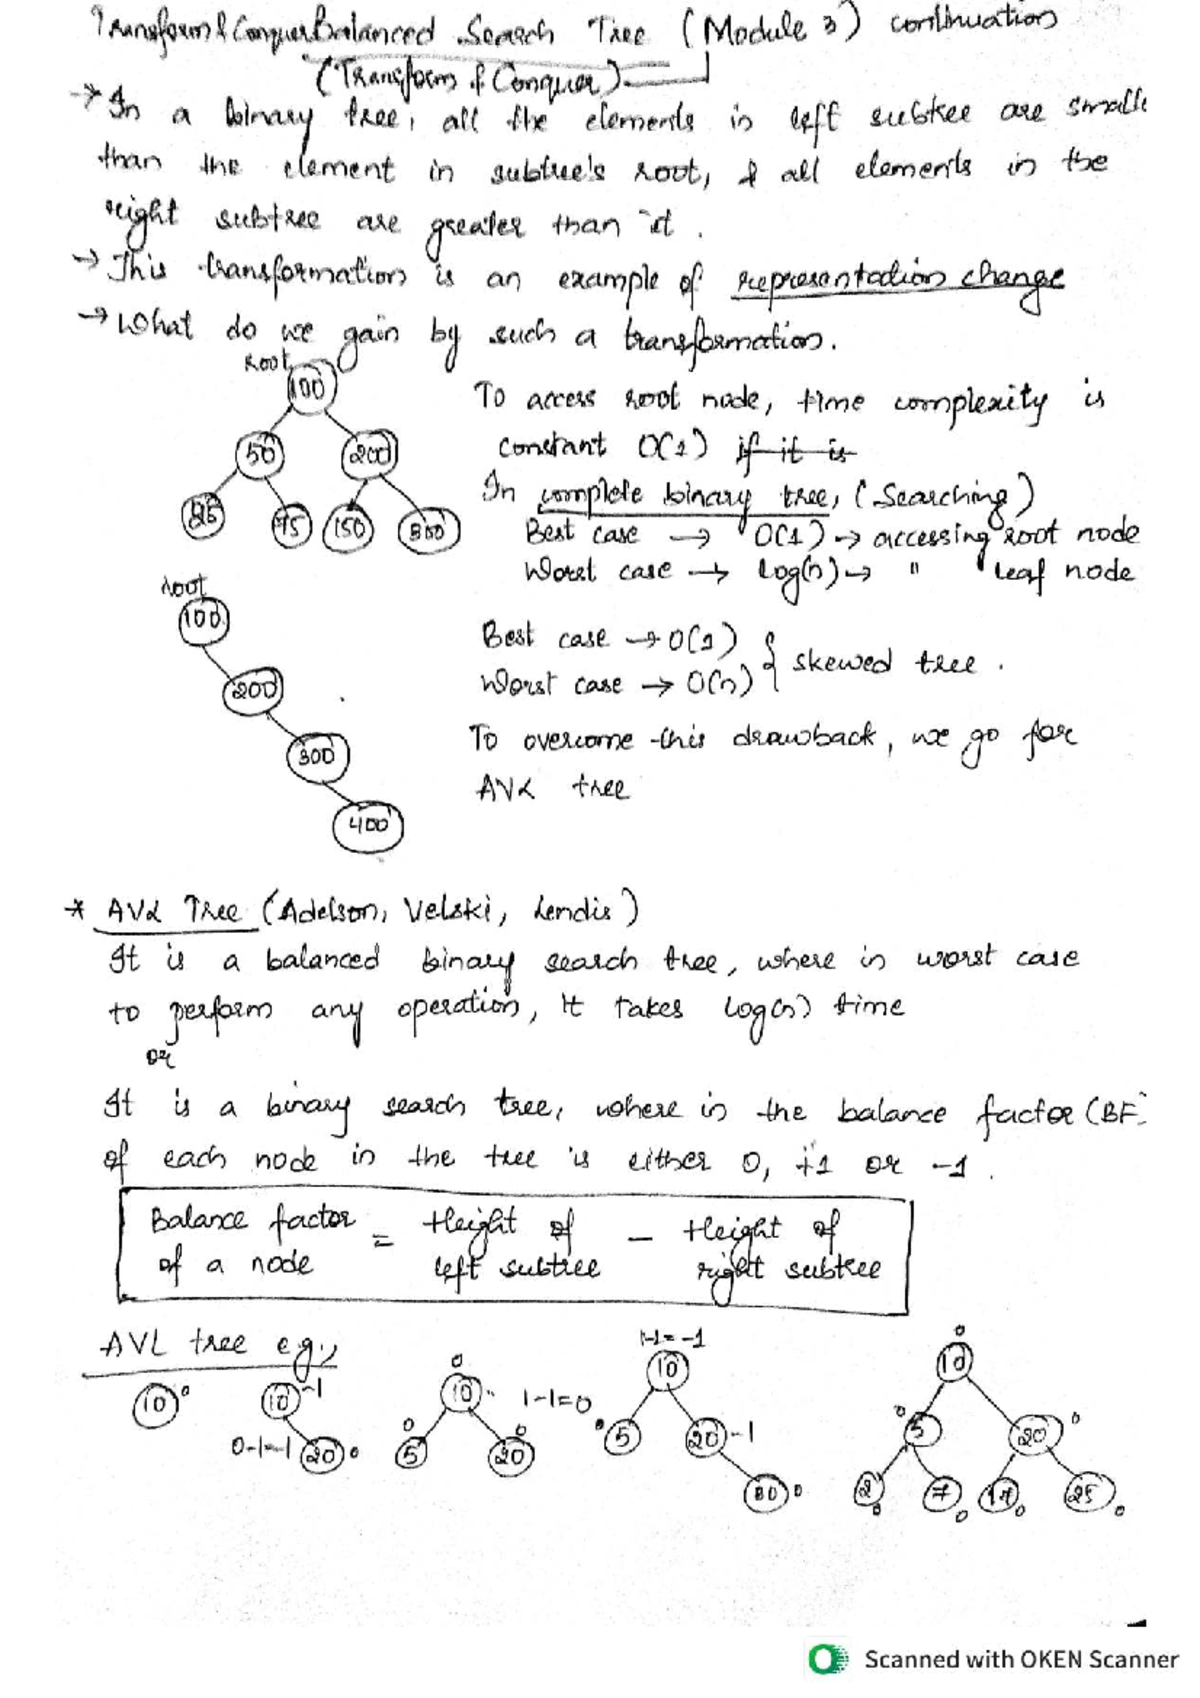 Transform & Conquer Balanced Search Tree (Module 3) continuation
(Transform & Conquer)
→ In a binary tree, all the elements in left subtree are smalle
than the element in subtree's root, & all elements in the
right subtree are greater than it.
→ This transformation is an example of representation change
→ What do we gain by such a transformation.
root
100
50 200
75 150
To access root node, time complexity is
constant O(1) if it is
In complete binary tree, (Searching)
Best case → O(1) → accessing root node
Worst case → log(n) → " leaf node
root
100
200
300
400
Best case → O(1)
Worst case → O(n) } skewed tree.
To overcome this drawback, we go for
AVL tree
* AVL Tree (Adelson, Velski, Lendis)
It is a balanced binary search tree, where in worst case
to perform any operation, it takes log(n) time
or
It is a binary search tree, where in the balance factor (BF)
of each node in the tree is either 0, +1 or -1.
Balance factor = Height of - Height of
of a node left subtree right subtree
AVL tree e.g.,
10 0
10 -1
0-1=-1 20 0
0
10 1-1=0
0 0
5 20
1-1=-1
10
0 5 20 -1
80 0
0
10
0 5 20 0
2 7 17 25
0 0 0 0
Scanned with OKEN Scanner